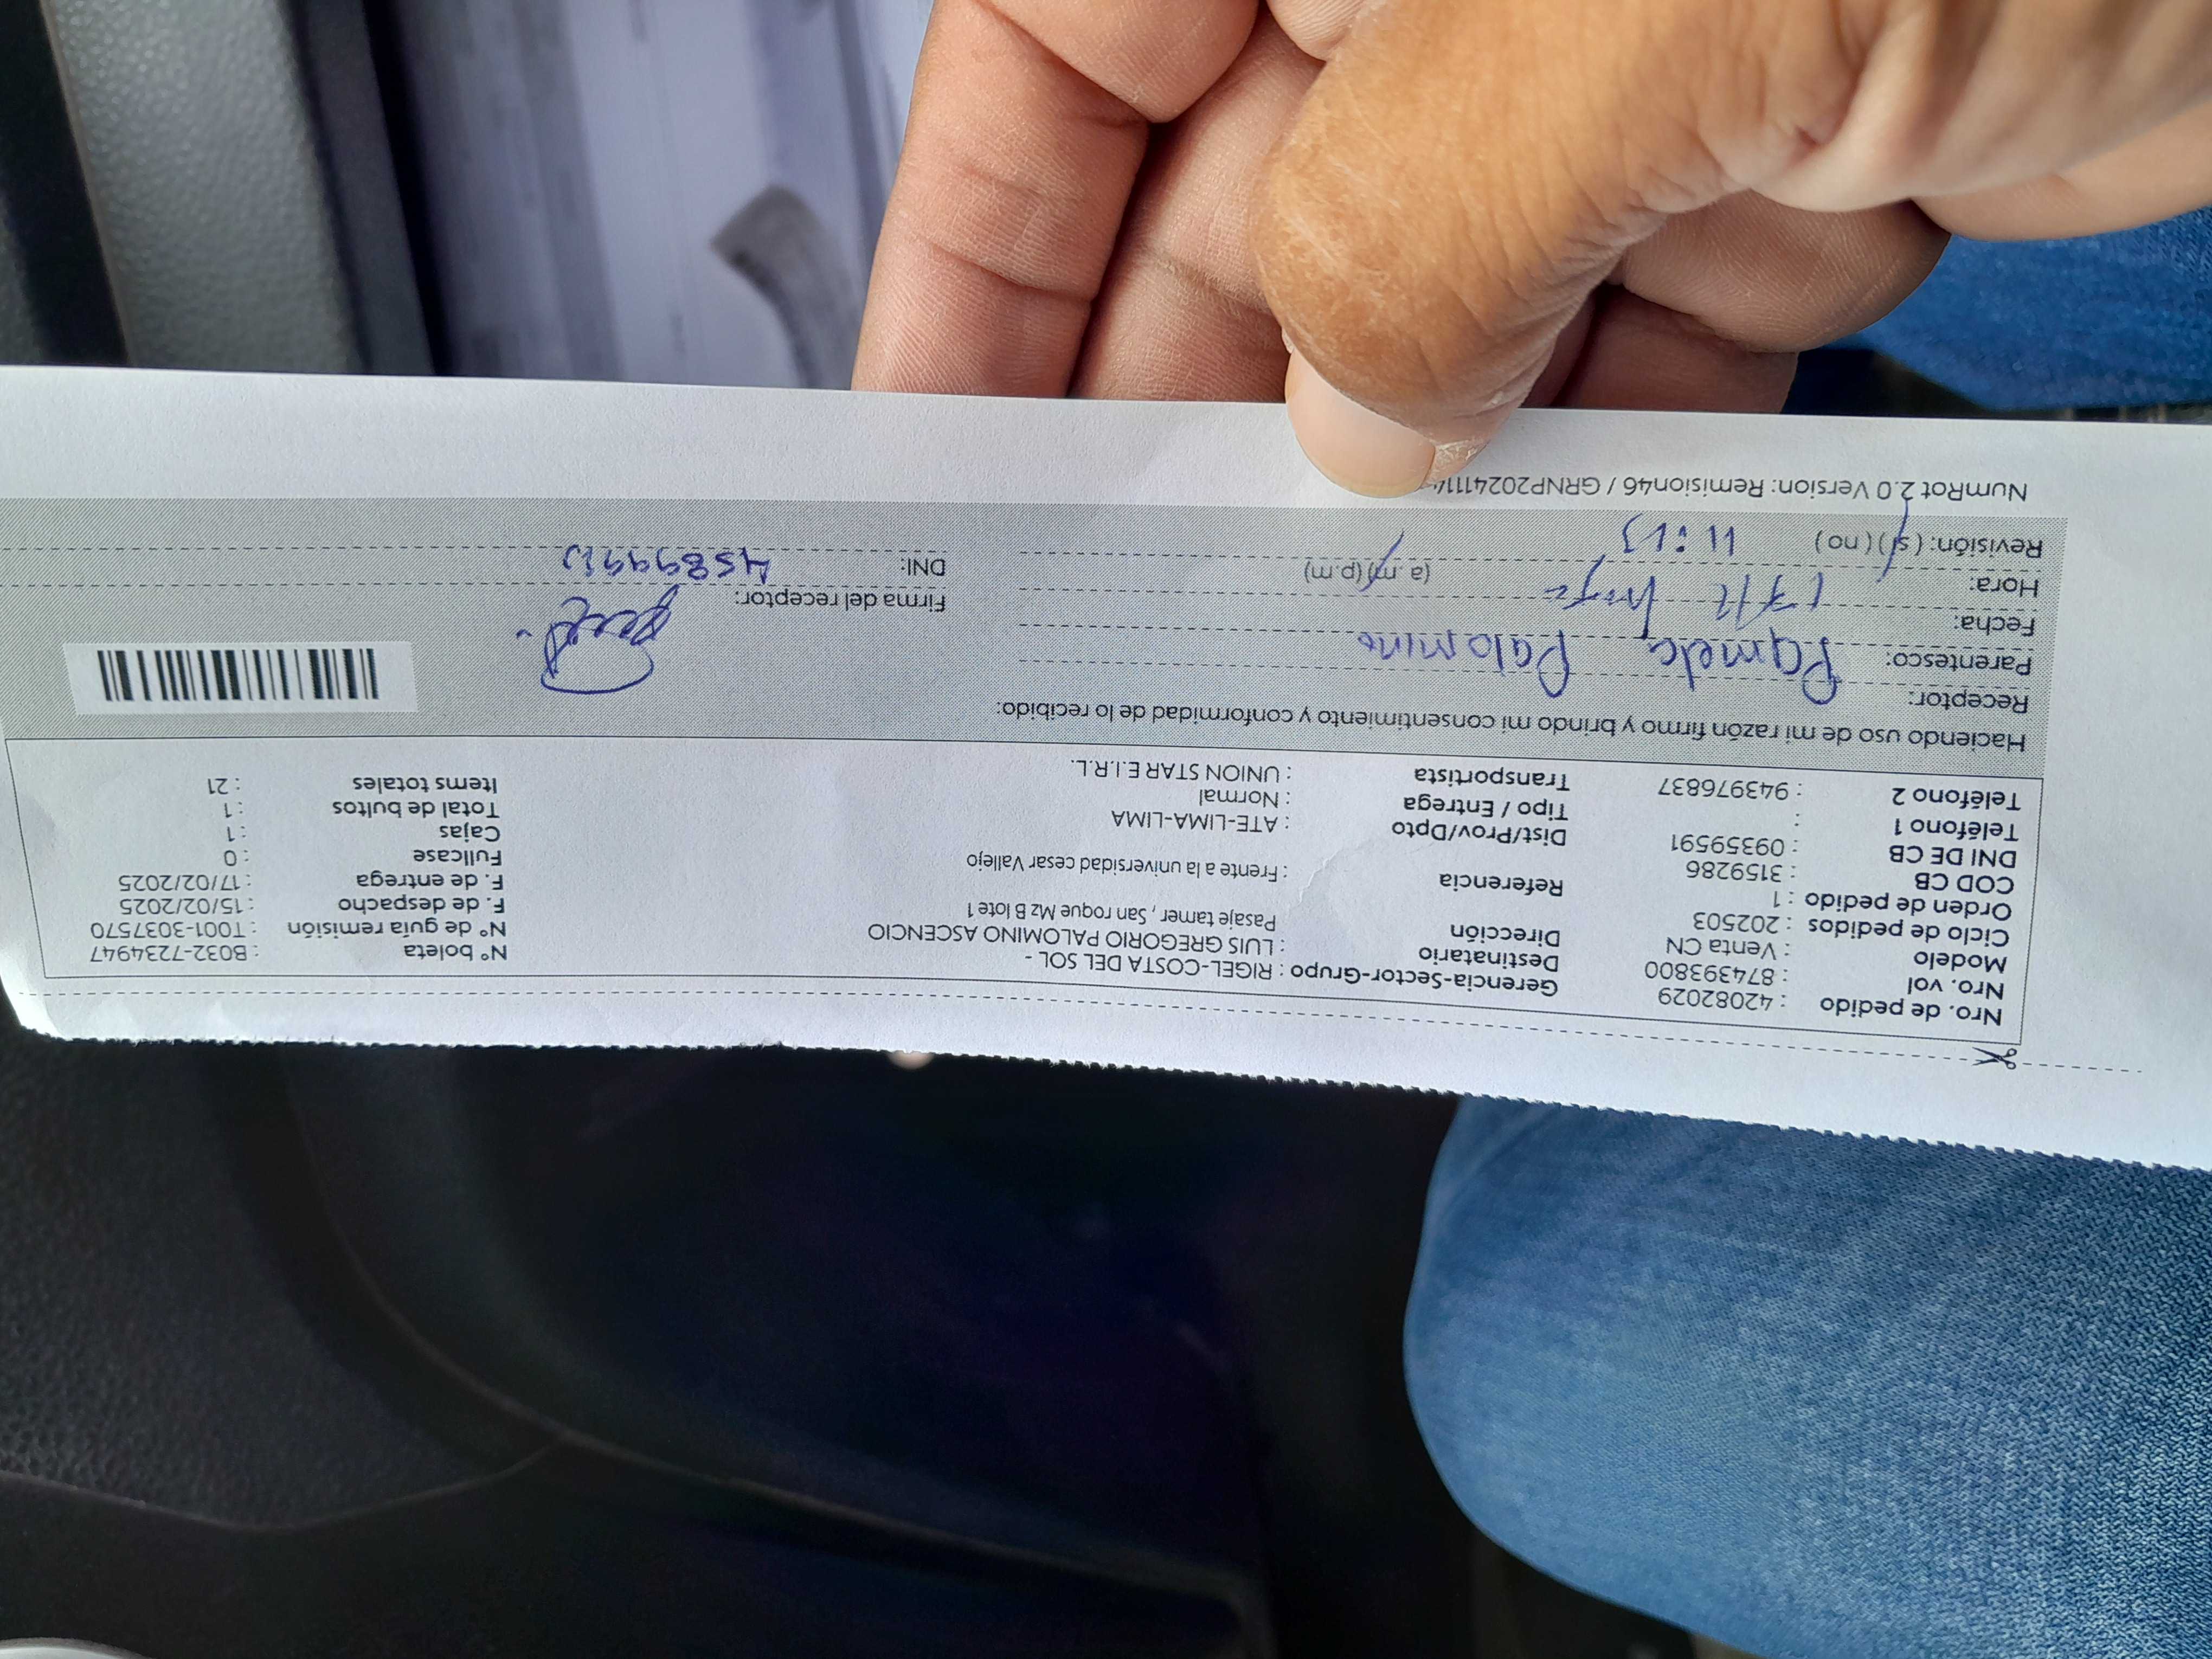 Nro. de pedido : 42082029 Gerencia-Sector-Grupo : RIGEL-COSTA DEL SOL - Nº boleta : B032-7234947
Nro. vol : 874393800 Destinatario : LUIS GREGORIO PALOMINO ASCENCIO Nº de guía remisión : T001-3037570
Modelo : Venta CN Dirección Pasaje tamer , San roque Mz B lote 1 F. de despacho : 15/02/2025
Ciclo de pedidos : 202503 F. de entrega : 17/02/2025
Orden de pedido : 1 Referencia : Frente a la universidad cesar Vallejo Fullcase : 0
COD CB : 3159286 Cajas : 1
DNI DE CB : 09359591 Dist/Prov/Dpto : ATE-LIMA-LIMA Total de bultos : 1
Teléfono 1 : Tipo / Entrega : Normal Items totales : 21
Teléfono 2 : 943976837 Transportista : UNION STAR E.I.R.L.
Haciendo uso de mi razón firmo y brindo mi consentimiento y conformidad de lo recibido:
Receptor: Pamela Palomino
Parentesco:
Fecha: 17/2 Firma del receptor:
Hora: (a.m)(p.m) DNI:
Revisión: (si)(no)
NumRot 2.0 Version: Remision46 / GRNP20241114